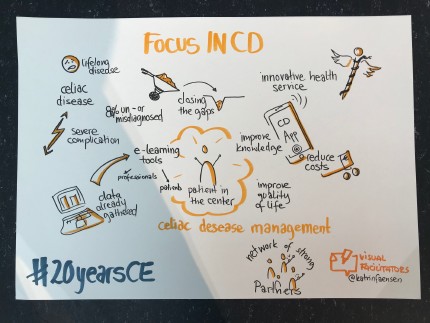 Focus IN CD
lifelong
disease
celiac
disease
8% un- or
misdiagnosed
closing
the gaps
innovative health
service
severe
complication
CD
App
improve
knowledge
reduce
costs
e-learning
tools
professionals
patients
patient in
the center
improve
quality
of life
data
already
gathered
celiac desease management
#20yearsCE
network of strong
Partners
VISUAL
FACILITATORS
@katrinfaensen